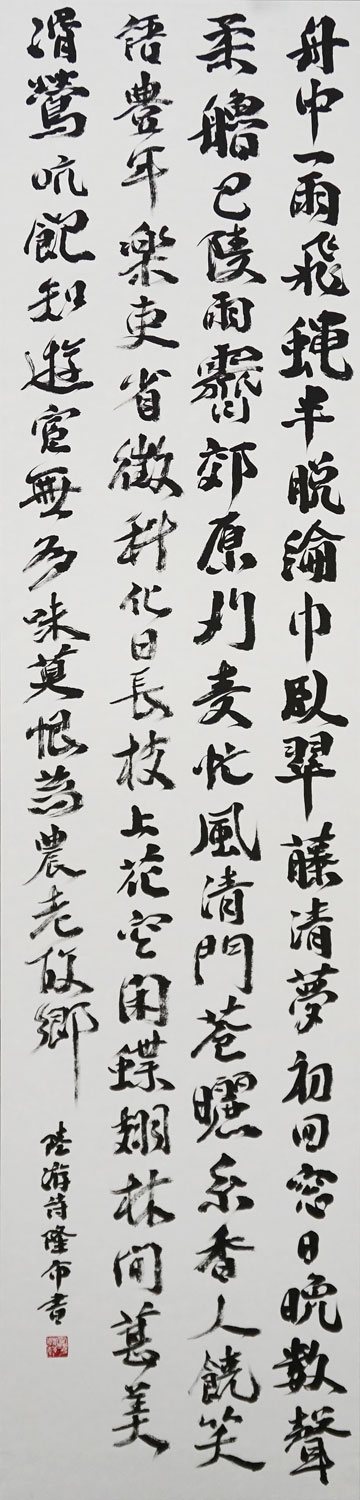 舟中一雨飛蝿半脱綸巾臥翠藤清夢初回窓日晚数聲
柔艪巴陵雨霽郊原刈麦忙風清門巷曬糸香人饒笑
語豊年楽吏省徴科化日長枝上花空閑蝶翅林間葚美
滑鶯吭飽知遊宦無多味莫恨為農老故鄉
陸游詩隆布書